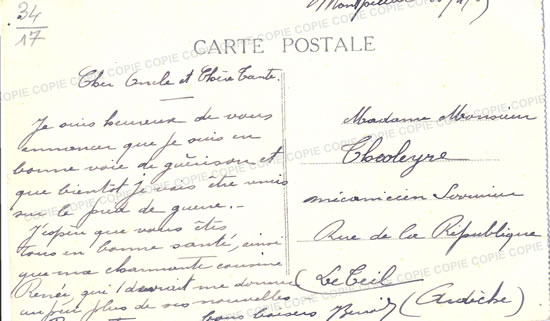 34
17
Montpellier
CARTE POSTALE
Cher Oncle et Chère Tante.
Je suis heureux de vous
annoncer que je suis en
bonne voie de guérison et
que bientôt je vais être mis
sur le pied de guerre.-
J'espère que vous êtes
tous en bonne santé, ainsi
que ma charmante cousine
Renée, qui devrait me donner
un peu plus de ses nouvelles
bons baisers Benoit
Madame Monsieur
Choleyre
mécanicien
Rue de la République
Le Teil
(Ardèche)
COPIE COPIE COPIE COPIE COPIE COPIE